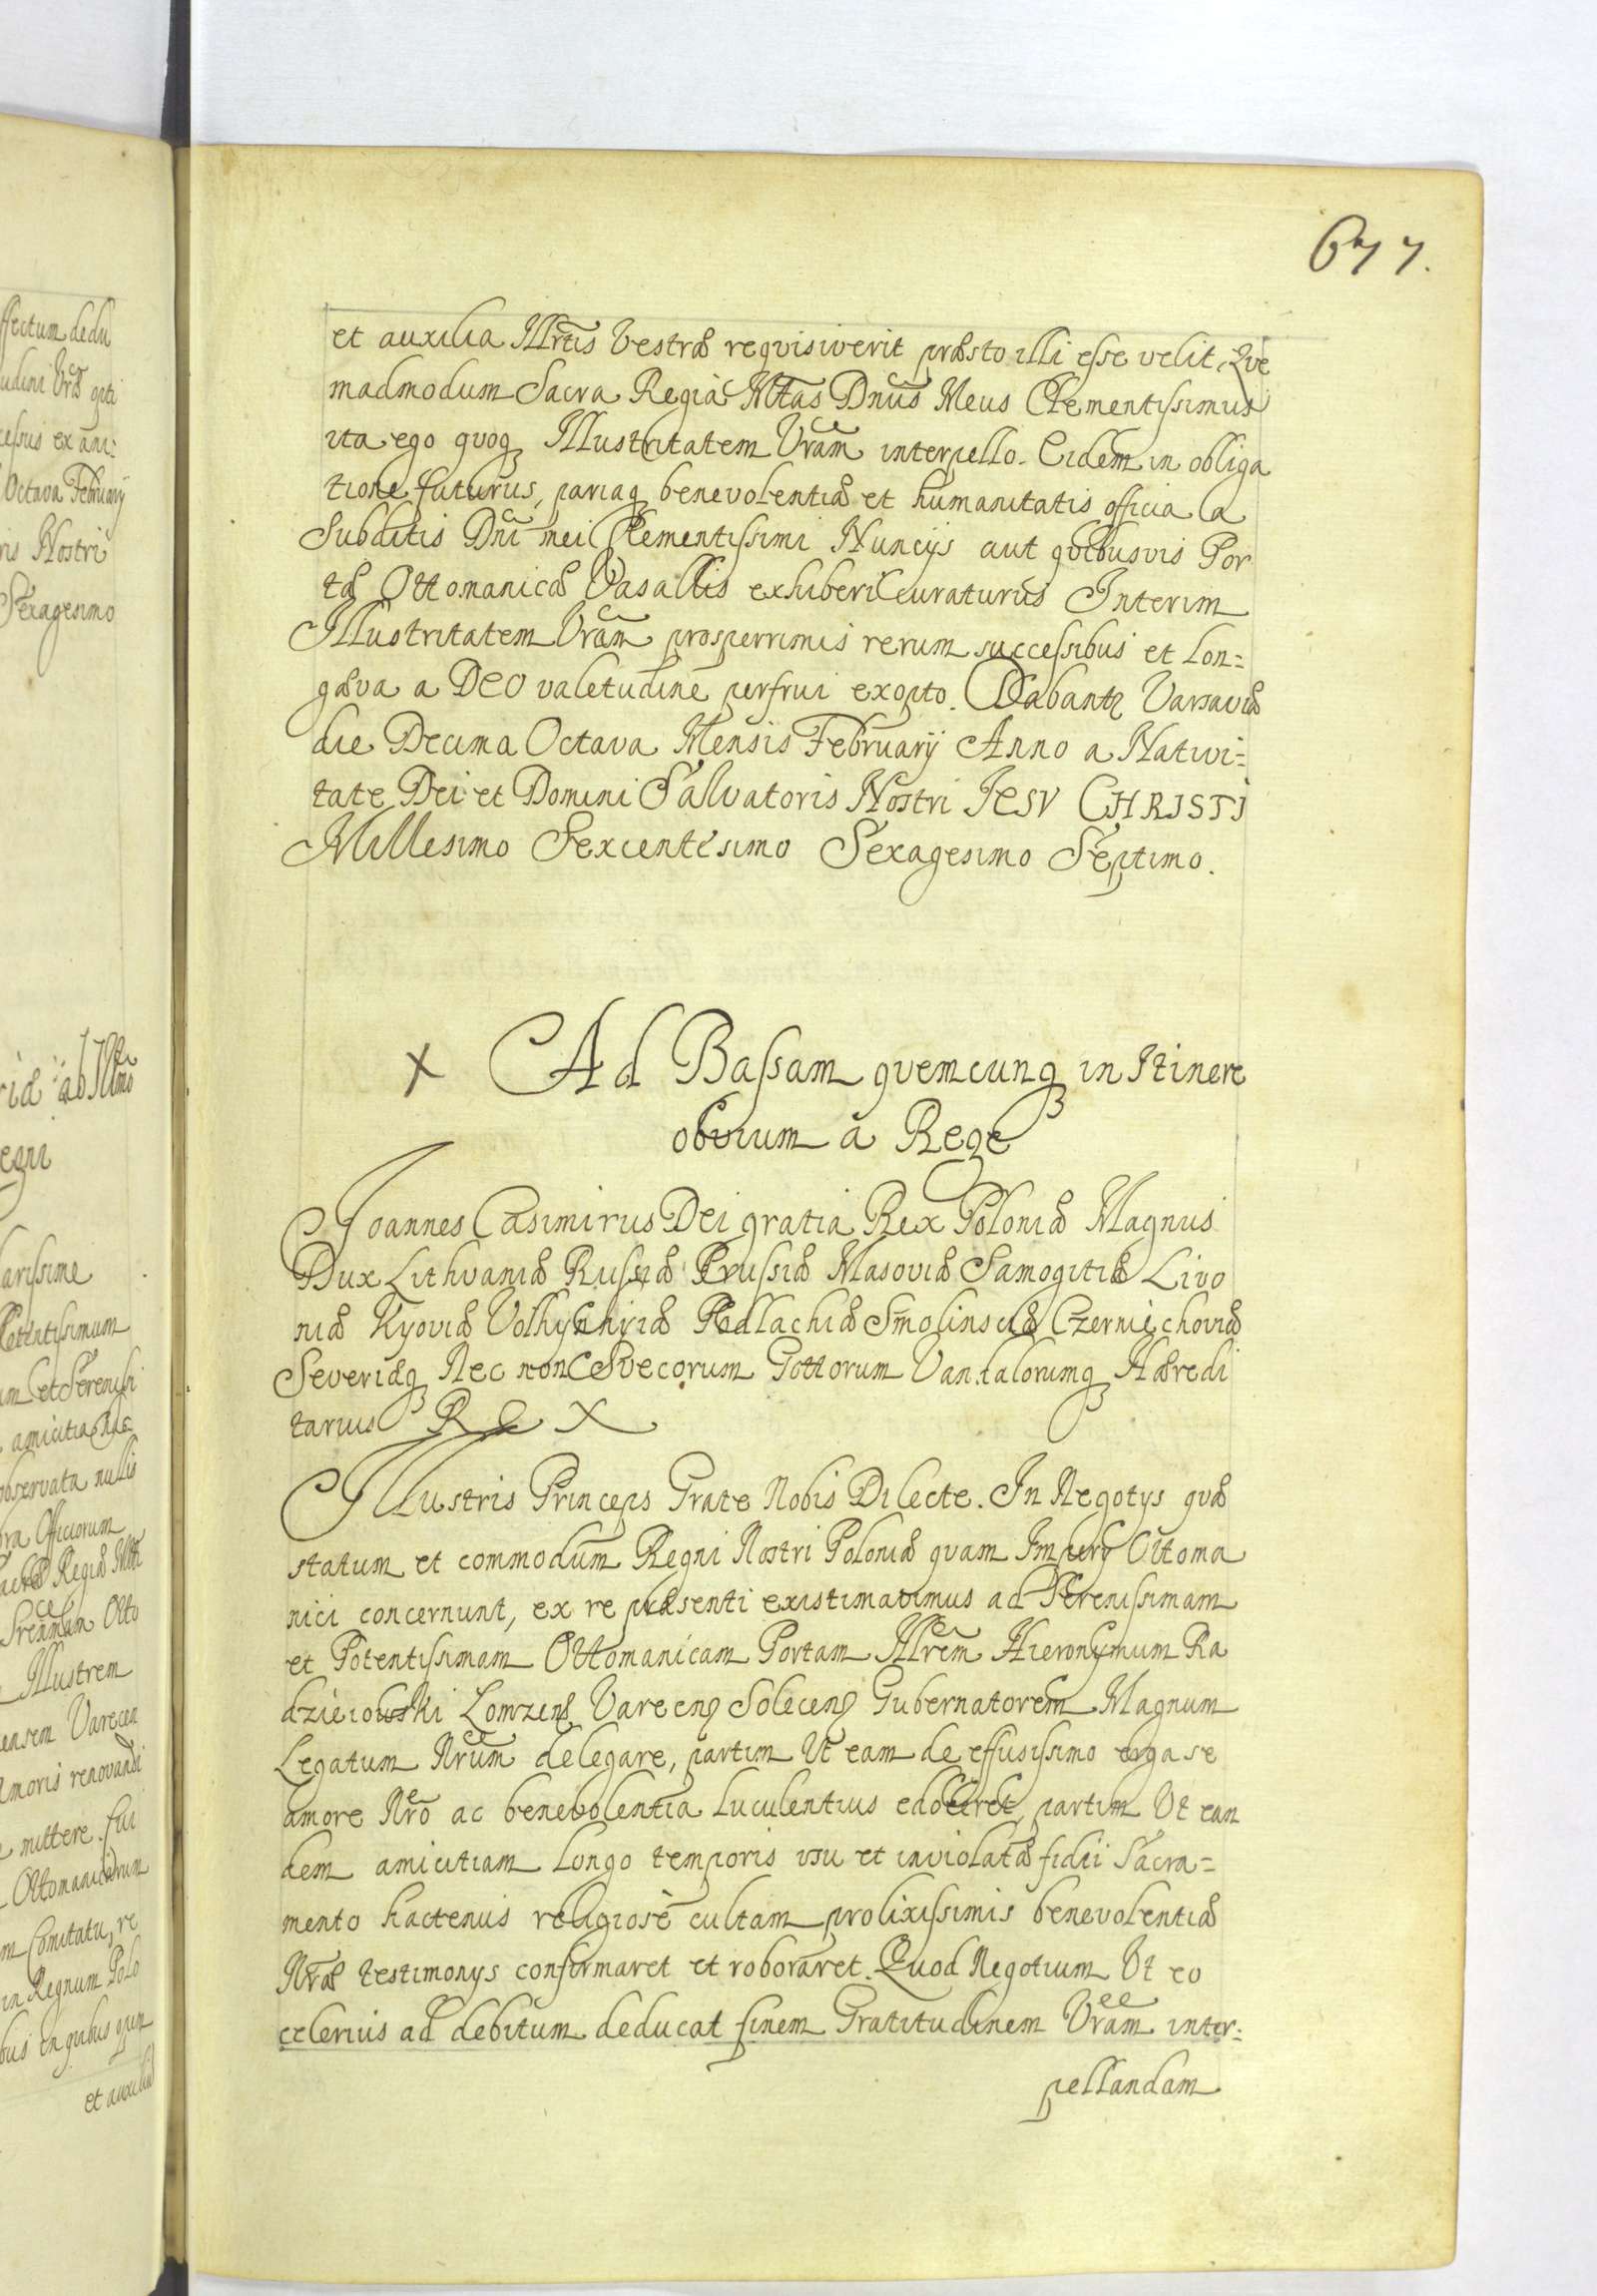 677.
et auxilia Illrtis Vestræ reqvisiverit præsto illi esse velit, Qve
madmodum Sacra Regia Mtas Dnus Meus Clementissimus
ita ego qvoq Illustritatem Vram interpello. Eidem in obliga
tione futurus, pariaq benevolentiæ et humanitatis officia a
Subditis Dni mei Clementissimi Nuncijs aut qvibusvis Por
tæ Ottomanicæ Vasallis exhiberi curaturus Interim
Illustritatem Vram prosperrimis rerum successibus et lon=
gæva a DEO valetudine perfrui exopto. Dabant Varsaviæ
die Decima Octava Mensis February Anno a Nativi=
tate Dei et Domini Salvatoris Nostri JESV CHRISTI
Millesimo Sexcentesimo Sexagesimo Septimo.
x Ad Bassam qvemcunq in Itinere
obvium a Rege
Joannes Casimirus Dei gratia Rex Poloniæ Magnus
Dux Lithvaniæ Russiæ Prussiæ Masoviæ Samogitiæ Livo
niæ Kyoviæ Volhyniæ Podlachiæ Smolinsciæ Czerniechoviæ
Severiæq Nec non Svecorum Gottorum Vandalorumq Hæredi
tarius REX
Illustris Princeps Grate Nobis Dilecte. In Negotys qvæ
statum et commodum Regni Nostri Poloniæ qvam Impery Ottoma
nici concernunt, ex re præsenti existimavimus ad Serenissimam
et Potentissimam Ottomanicam Portam Illrem Hieronymum Ra
dzieiowski Lomzens Varecens Solecens Gubernatorem Magnum
Legatum Nrum delegare, partim Ut eam de effusissimo erga se
amore Nro ac benevolentia luculentius edoceret, partim Ut ean
dem amicitiam longo temporis usu et inviolatæ fidei Sacra=
mento hactenus religiosè cultam prolixissimis benevolentiæ
Nræ testimonys confirmaret et roboraret. Quod Negotium Ut eo
celerius ad debitum deducat finem Gratitudinem Vram inter=
pellandam